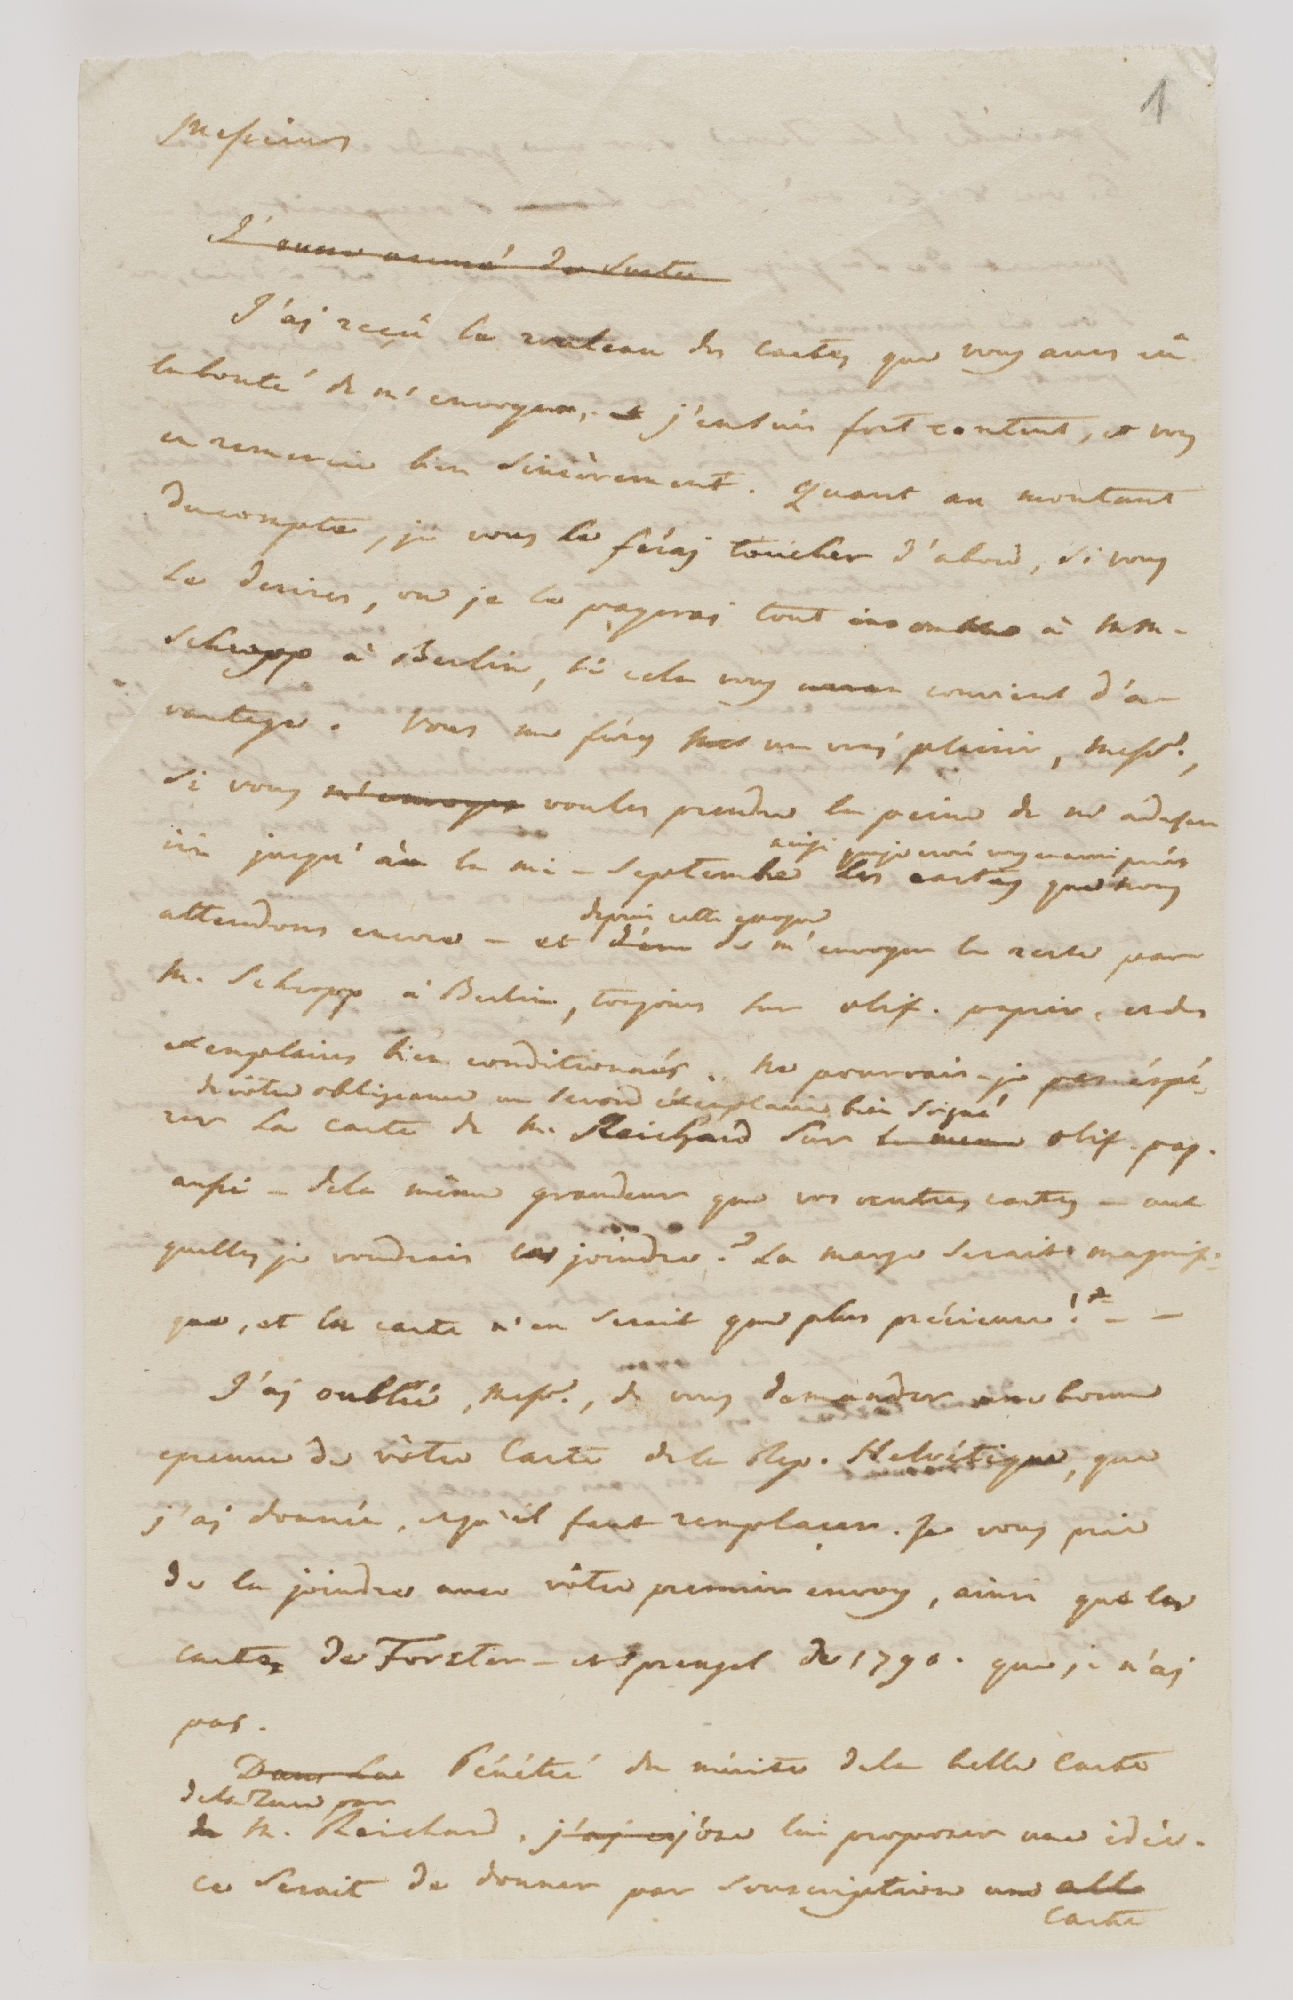 1
Messieurs
J'ai reçû le rouleau des cartes que vous avés eû
la bonté de m'envoyer, j'en suis fort content, et vous
en remercie bien sincèrement. Quant au montant
du compte, je vous le ferai toucher d'abord, si vous
le desires, ou je le payerai tout ensemble à MM.
Schropp à Berlin, si cela vous convient d'a-
vantage. Vous me férés un vrai plaisir, Messrs.,
si vous m'envoyer voulés prendre la peine de m'adresser
ici jusqu'à la mi-septembre les cartes que nous
aussi que je crois
attendons encore – et de m'envoyer le reste par
depuis cette epoque
M. Schropp à Berlin, toujours sur olif. papier, et des
exemplaires bien conditionnés. Ne pourrois-je pas éspé-
de vôtre obligeance un second éxemplaire bien soigné
rer la carte de M. Reichard sur le meme olif. pap.
aussi – de la même grandeur que vos autres cartes – aux
quelles je voudrais la joindre? La marge serait magnifi-
que, et la carte n'en serait que plus précieuse!
J'ai oublié, Messrs., de vous demander une bonne
epreuve de vôtre Carte de la Rep. Helvétique, que
j'ai donnée, et qu'il faut remplacer. Je vous prie
de la joindre avec vôtre premier envoy, ainsi que les
cartes de Forster – et Sprengel de 1790. que je n'ai
pas.
Dans la Pénétré du mérite de la belle Carte
de la par
de M. Reichard, j'ai j'ose lui proposer une idée.
ce serait de donner par souscription une
Carte